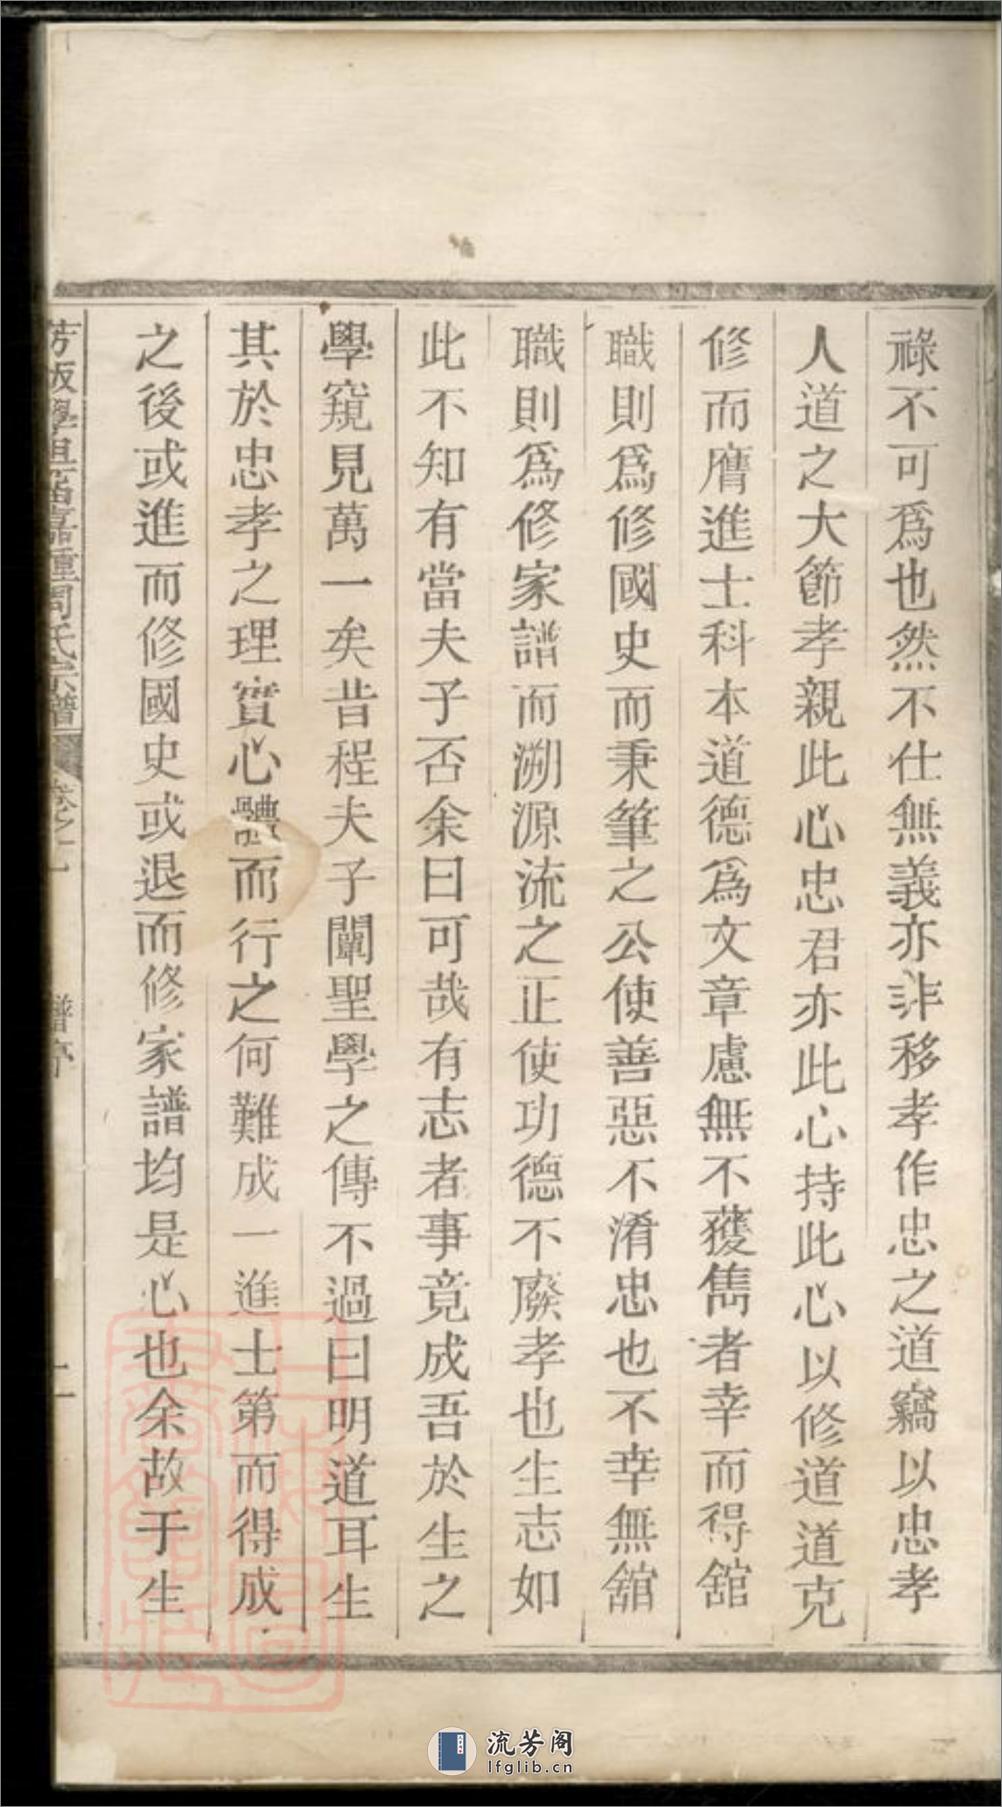 祿不可爲也然不仕無義亦非移孝作忠之道竊以忠孝
人道之大節孝親此心忠君亦此心持此心以修道道克
修而膺進士科本道德爲文章慮無不獲雋者幸而得舘
職則爲修國史而秉筆之公使善惡不淆忠也不幸無舘
職則爲修家譜而溯源流之正使功德不廢孝也生志如
此不知有當夫子否余曰可哉有志者事竟成吾於生之
學窺見萬一矣昔程夫子闡聖學之傳不過曰明道耳生
其於忠孝之理實心體而行之何難成一進士第而得成
之後或進而修國史或退而修家譜均是心也余故于生
周氏宗譜
卷之一
譜序
流芳阁
lfglib.cn